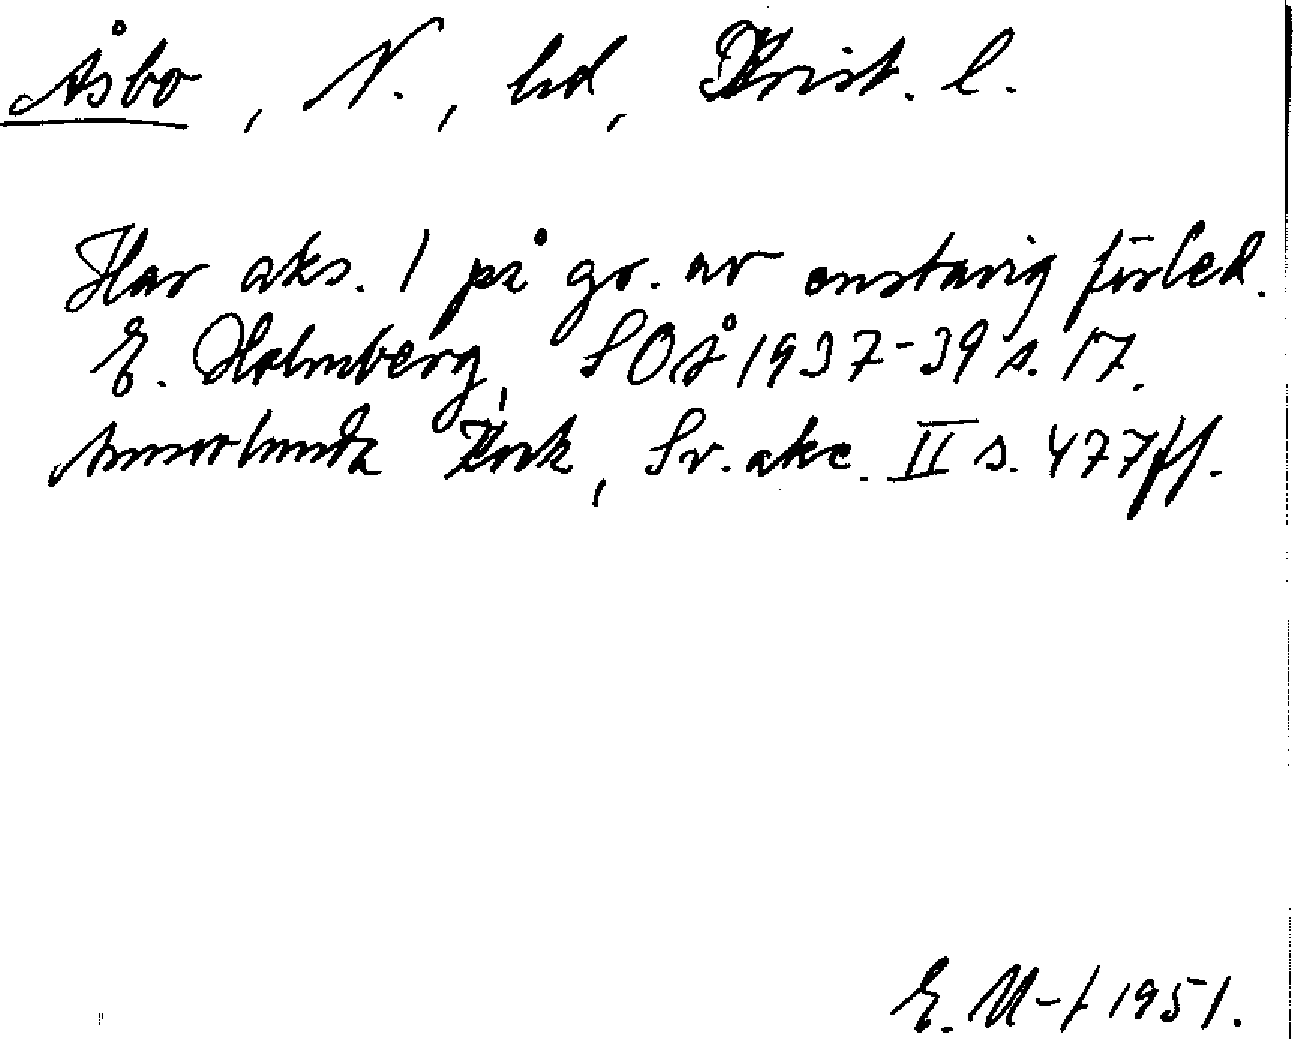 Åsbo, N., hd, Krist. l.
Har aks. 1 på gr. av enstavig förled.
E. Holmberg, SOÅ 1937-39 s. 17.
Annorlunda Kock, Sv. akc. II s. 477 ff.
E. M-t 1951.